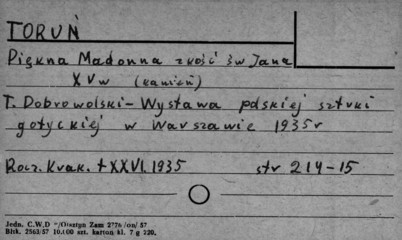 TORUŃ
Piękna Madonna z kość św Jana
XV w (kamień)
T. Dobrowolski - Wystawa polskiej sztuki
gotyckiej w Warszawie 1935 r
Rocz. Krak. t XXVI. 1935 str 214-15
Jedn. C.W.D. Olsztyn Zam 2776/on/57
Bisk. 2563/57 10.000 szt. karton kl. 7 g 220.